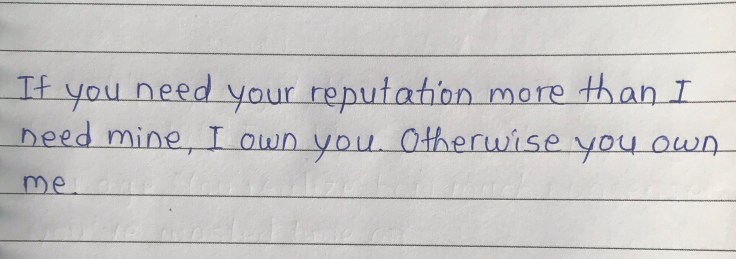 If you need your reputation more than I
need mine, I own you. Otherwise you own
me.